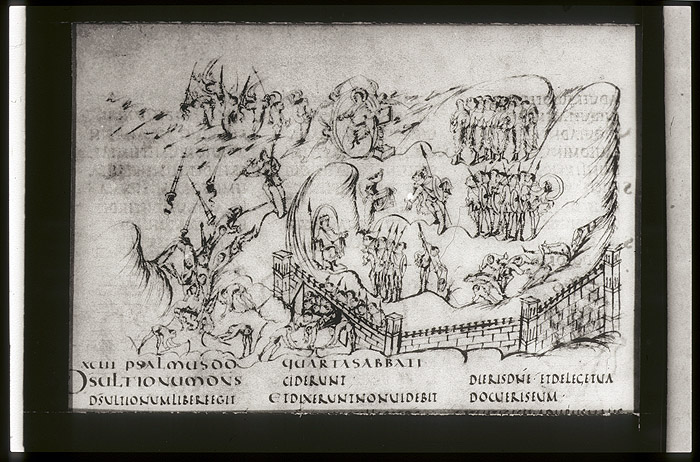 XCIII PSALMUS DD QUARTA SABBATI
DS ULTIONUM DNS
DS ULTIONUM LIBERE EGIT
CIDERUNT
ET DIXERUNT NON UIDEBIT
DIERIS DNE ET DE LEGE TUA
DOCUERIS EUM